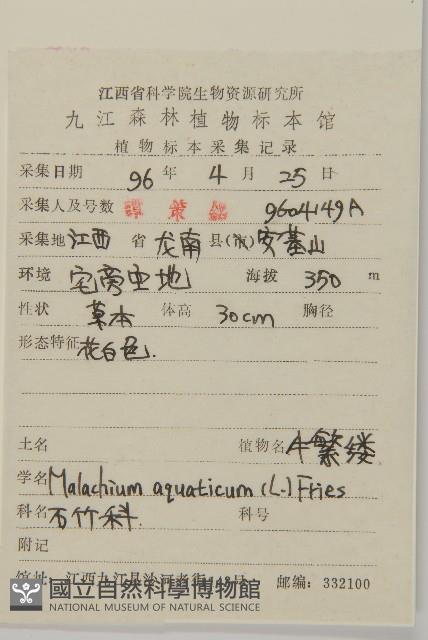 江西省科学院生物资源研究所
九江森林植物标本馆
植物标本采集记录
采集日期 96 年 4 月 25 日
采集人及号数 譚策銘 9604149A
采集地 江西 省 龙南 县(市) 安基山
环境 宅旁虫地 海拔 350 m
性状 草本 体高 30cm 胸径
形态特征 花白色.
土名 植物名 牛繁缕
学名 Malachium aquaticum (L.) Fries
科名 石竹科. 科号
附记
馆址: 江西九江县沙河老街 号 邮编: 332100
國立自然科學博物館
NATIONAL MUSEUM OF NATURAL SCIENCE